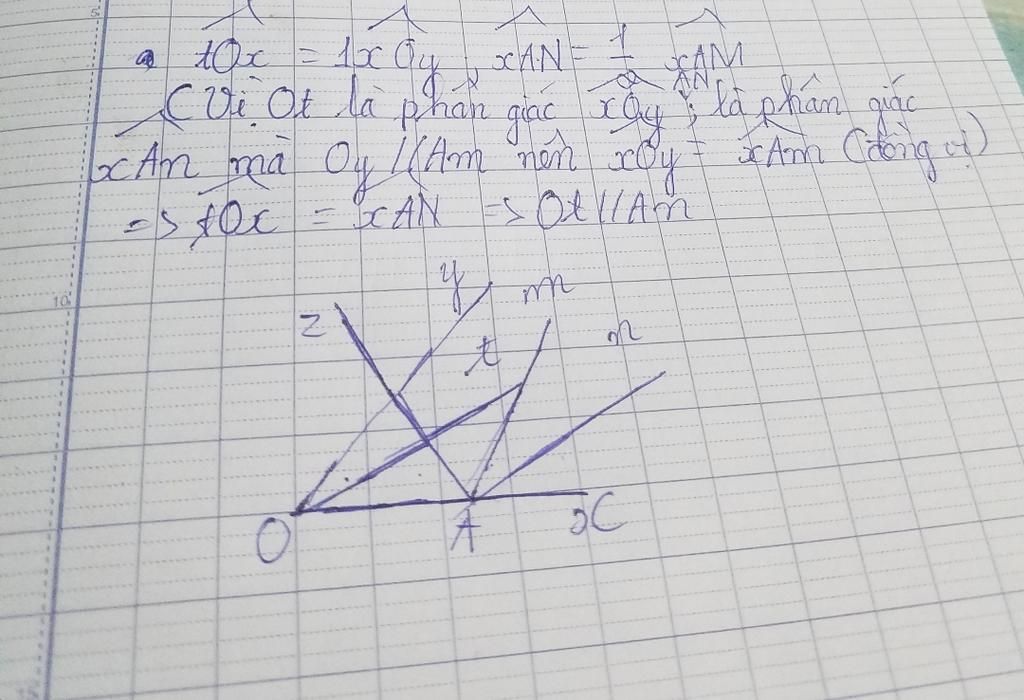 a tOx = 1xOy, xAN = 1/2 xAM
(Vì Ot là phân giác xOy; AN là phân giác
xAm mà Oy // Am nên xOy = xAm (đồng vị)
=> tOx = xAN => Ot // Am
y m
z n
t
O A x